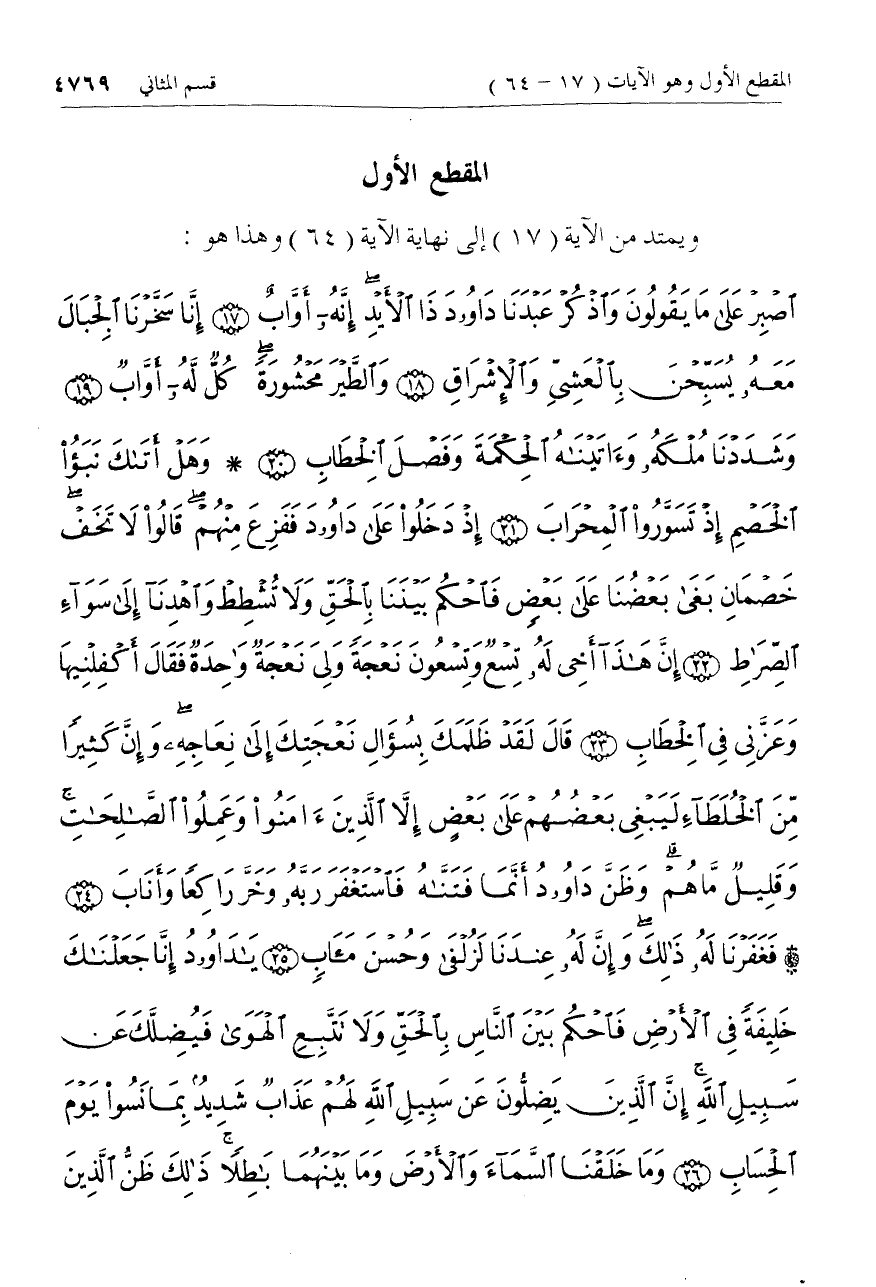 المقطع الأول وهو الآيات ( ١٧ - ٦٤ ) قسم المثاني ٤٧٦٩
المقطع الأول
ويمتد من الآية ( ١٧ ) إلى نهاية الآية ( ٦٤ ) وهذا هو :
ٱصْبِرْ عَلَىٰ مَا يَقُولُونَ وَٱذْكُرْ عَبْدَنَا دَاوُۥدَ ذَا ٱلْأَيْدِ ۖ إِنَّهُۥٓ أَوَّابٌ ﴿١٧﴾ إِنَّا سَخَّرْنَا ٱلْجِبَالَ
مَعَهُۥ يُسَبِّحْنَ بِٱلْعَشِىِّ وَٱلْإِشْرَاقِ ﴿١٨﴾ وَٱلطَّيْرَ مَحْشُورَةً ۖ كُلٌّ لَّهُۥٓ أَوَّابٌ ﴿١٩﴾
وَشَدَدْنَا مُلْكَهُۥ وَءَاتَيْنَـٰهُ ٱلْحِكْمَةَ وَفَصْلَ ٱلْخِطَابِ ﴿٢٠﴾ * وَهَلْ أَتَىٰكَ نَبَؤُا۟
ٱلْخَصْمِ إِذْ تَسَوَّرُوا۟ ٱلْمِحْرَابَ ﴿٢١﴾ إِذْ دَخَلُوا۟ عَلَىٰ دَاوُۥدَ فَفَزِعَ مِنْهُمْ ۖ قَالُوا۟ لَا تَخَفْ ۖ
خَصْمَانِ بَغَىٰ بَعْضُنَا عَلَىٰ بَعْضٍ فَٱحْكُم بَيْنَنَا بِٱلْحَقِّ وَلَا تُشْطِطْ وَٱهْدِنَآ إِلَىٰ سَوَآءِ
ٱلصِّرَٰطِ ﴿٢٢﴾ إِنَّ هَـٰذَآ أَخِى لَهُۥ تِسْعٌ وَتِسْعُونَ نَعْجَةً وَلِىَ نَعْجَةٌ وَٰحِدَةٌ فَقَالَ أَكْفِلْنِيهَا
وَعَزَّنِى فِى ٱلْخِطَابِ ﴿٢٣﴾ قَالَ لَقَدْ ظَلَمَكَ بِسُؤَالِ نَعْجَتِكَ إِلَىٰ نِعَاجِهِۦ ۖ وَإِنَّ كَثِيرًا
مِّنَ ٱلْخُلَطَآءِ لَيَبْغِى بَعْضُهُمْ عَلَىٰ بَعْضٍ إِلَّا ٱلَّذِينَ ءَامَنُوا۟ وَعَمِلُوا۟ ٱلصَّـٰلِحَـٰتِ
وَقَلِيلٌ مَّا هُمْ ۗ وَظَنَّ دَاوُۥدُ أَنَّمَا فَتَنَّـٰهُ فَٱسْتَغْفَرَ رَبَّهُۥ وَخَرَّ رَاكِعًا وَأَنَابَ ﴿٢٤﴾
۞ فَغَفَرْنَا لَهُۥ ذَٰلِكَ ۖ وَإِنَّ لَهُۥ عِندَنَا لَزُلْفَىٰ وَحُسْنَ مَـَٔابٍ ﴿٢٥﴾ يَـٰدَاوُۥدُ إِنَّا جَعَلْنَـٰكَ
خَلِيفَةً فِى ٱلْأَرْضِ فَٱحْكُم بَيْنَ ٱلنَّاسِ بِٱلْحَقِّ وَلَا تَتَّبِعِ ٱلْهَوَىٰ فَيُضِلَّكَ عَن
سَبِيلِ ٱللَّهِ ۚ إِنَّ ٱلَّذِينَ يَضِلُّونَ عَن سَبِيلِ ٱللَّهِ لَهُمْ عَذَابٌ شَدِيدٌۢ بِمَا نَسُوا۟ يَوْمَ
ٱلْحِسَابِ ﴿٢٦﴾ وَمَا خَلَقْنَا ٱلسَّمَآءَ وَٱلْأَرْضَ وَمَا بَيْنَهُمَا بَـٰطِلًا ۚ ذَٰلِكَ ظَنُّ ٱلَّذِينَ